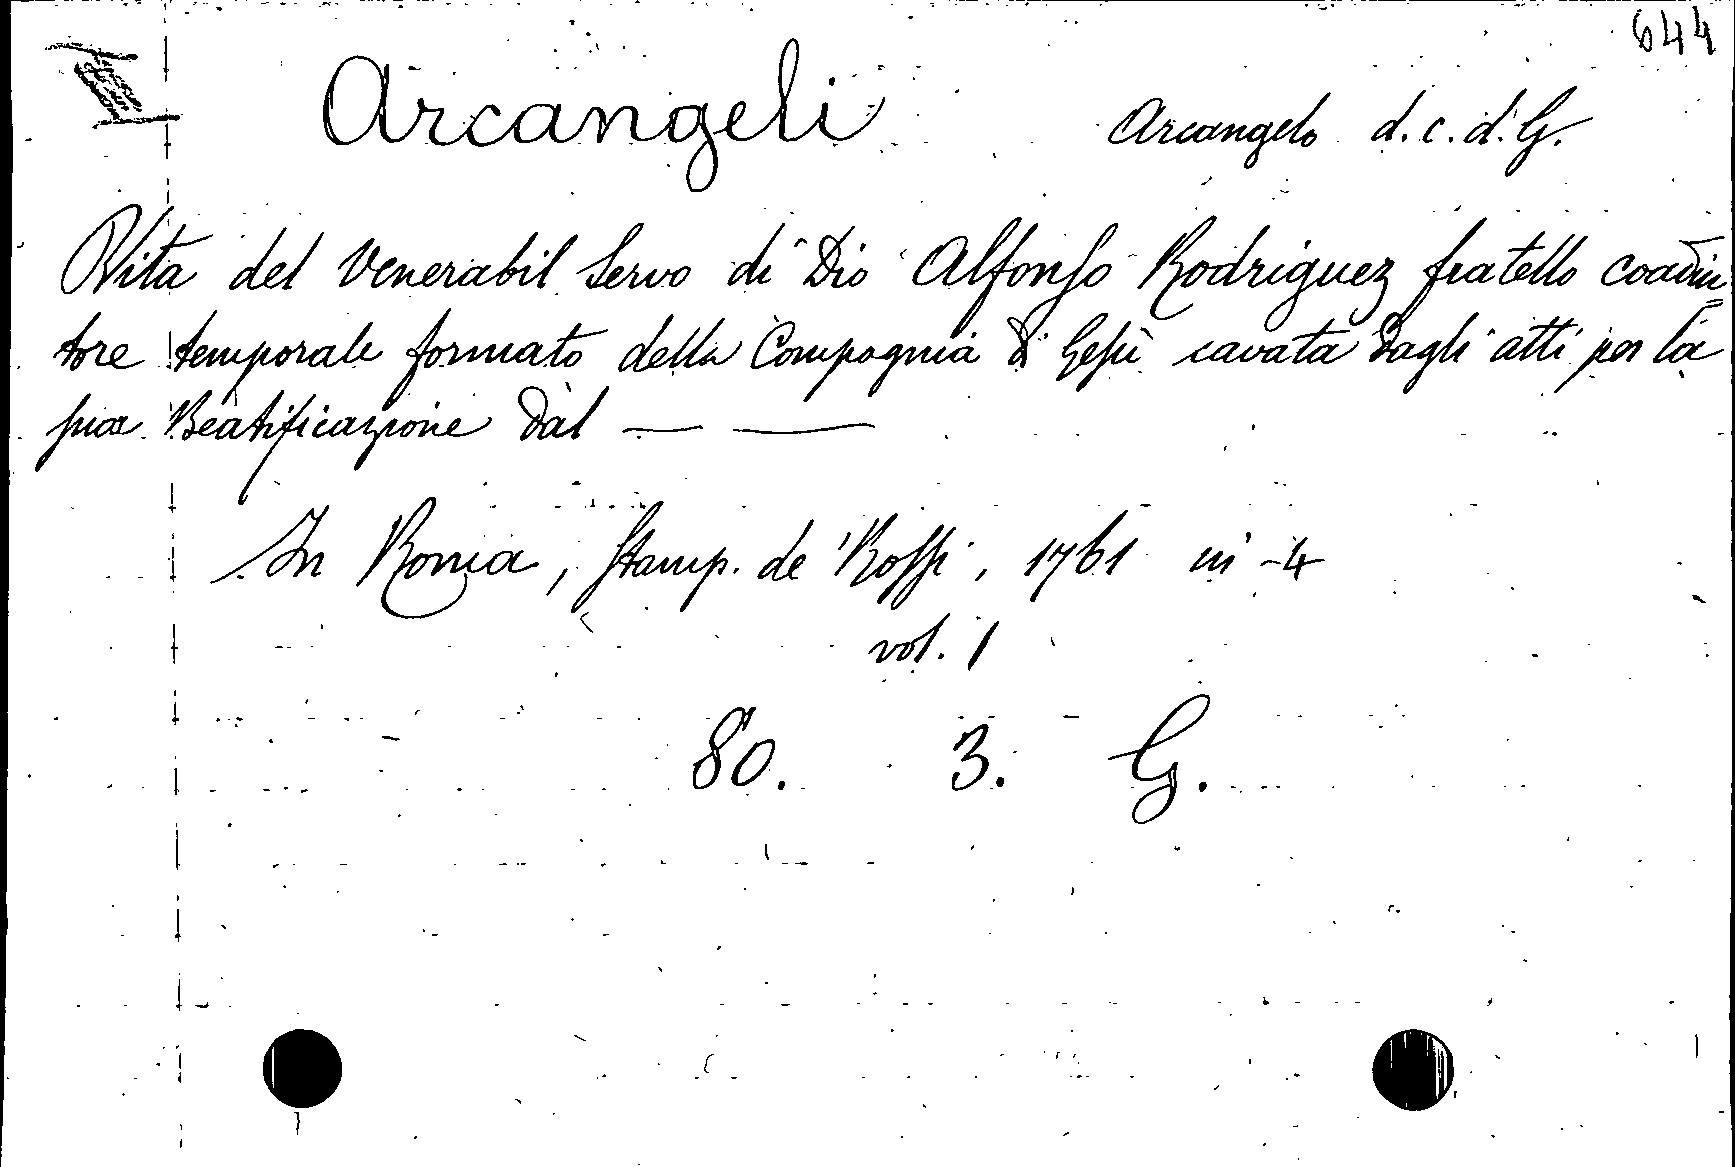 644
Arcangeli Arcangelo d. c. d. G.
Vita del Venerabil Servo di Dio Alfonso Rodriguez fratello coadiu=
tore temporale formato della Compagnia di Gesù cavata dagli atti per la
sua Beatificazione dal — —
In Roma, Stamp. de' Rossi, 1761 in-4
vol. 1
80. 3. G.